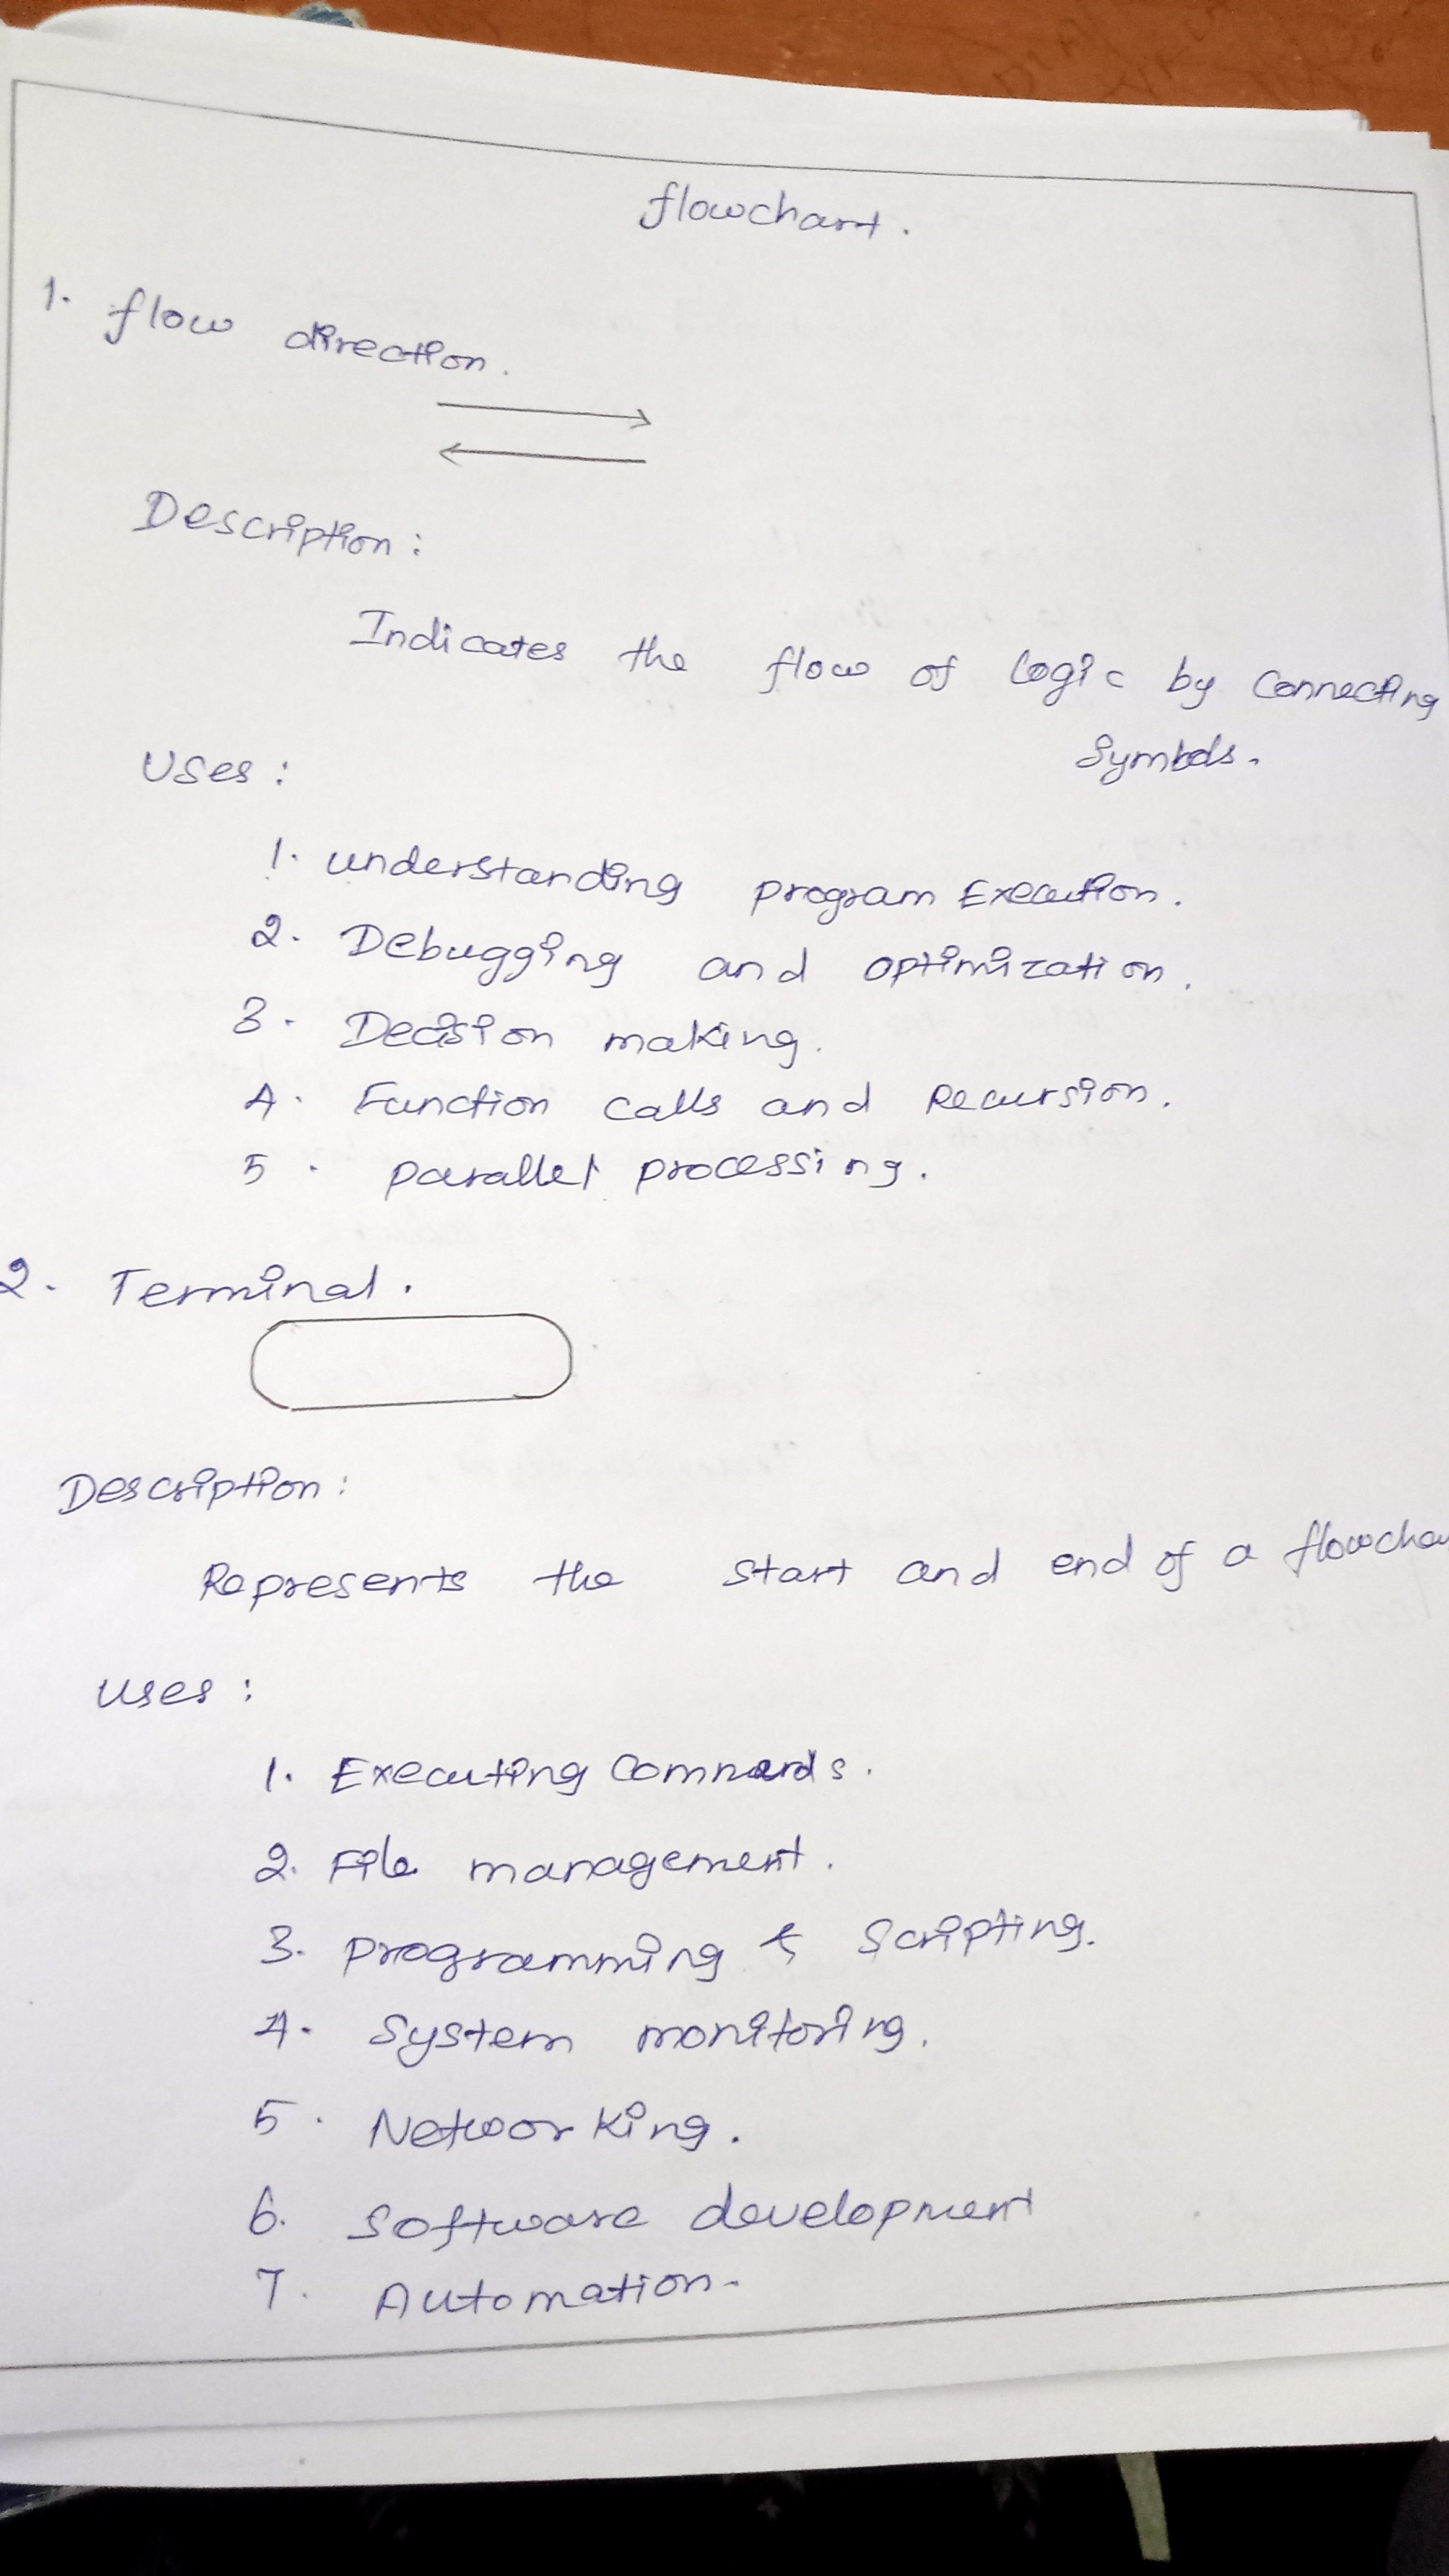 flowchart.
1. flow direction.
Description:
Indicates the flow of logic by connecting
symbols.
Uses:
1. understanding program Execution.
2. Debugging and optimization.
3. Decision making.
4. Function calls and Recursion.
5. parallel processing.
2. Terminal.
Description:
Represents the start and end of a flowchar
uses:
1. Executing Commands.
2. File management.
3. programming & Scripting.
4. System monitoring.
5. Networking.
6. Software development
7. Automation.